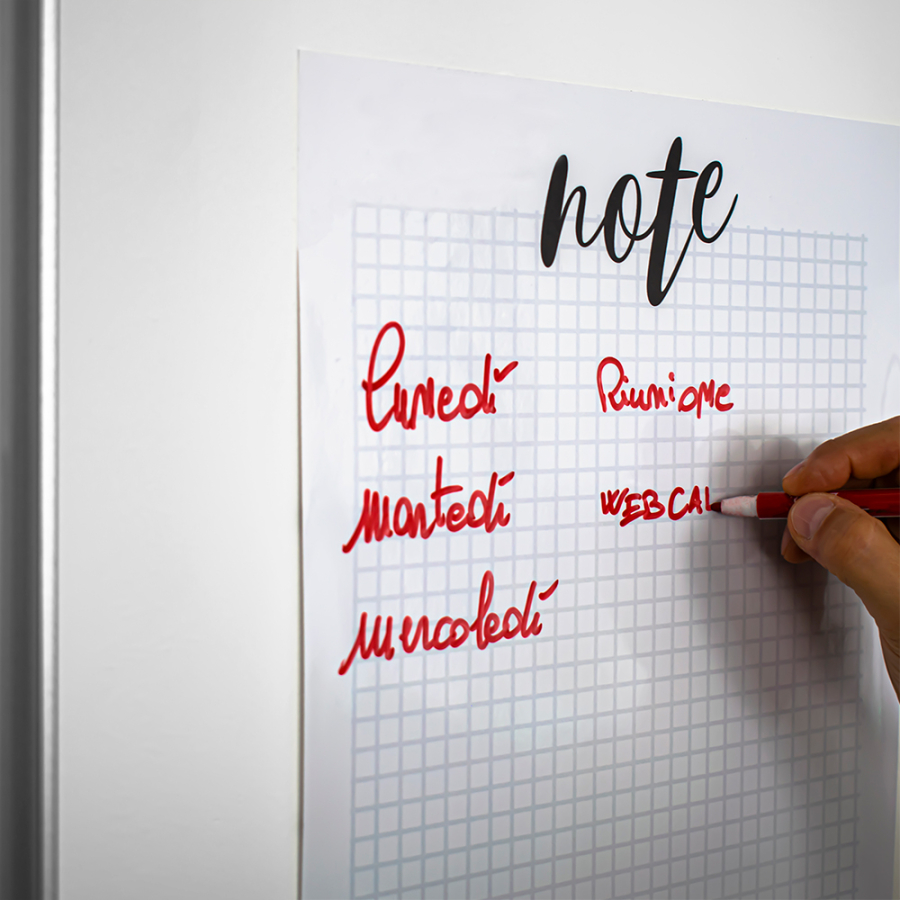 note
lunedì Riunione
martedì WEBCAL
mercoledì